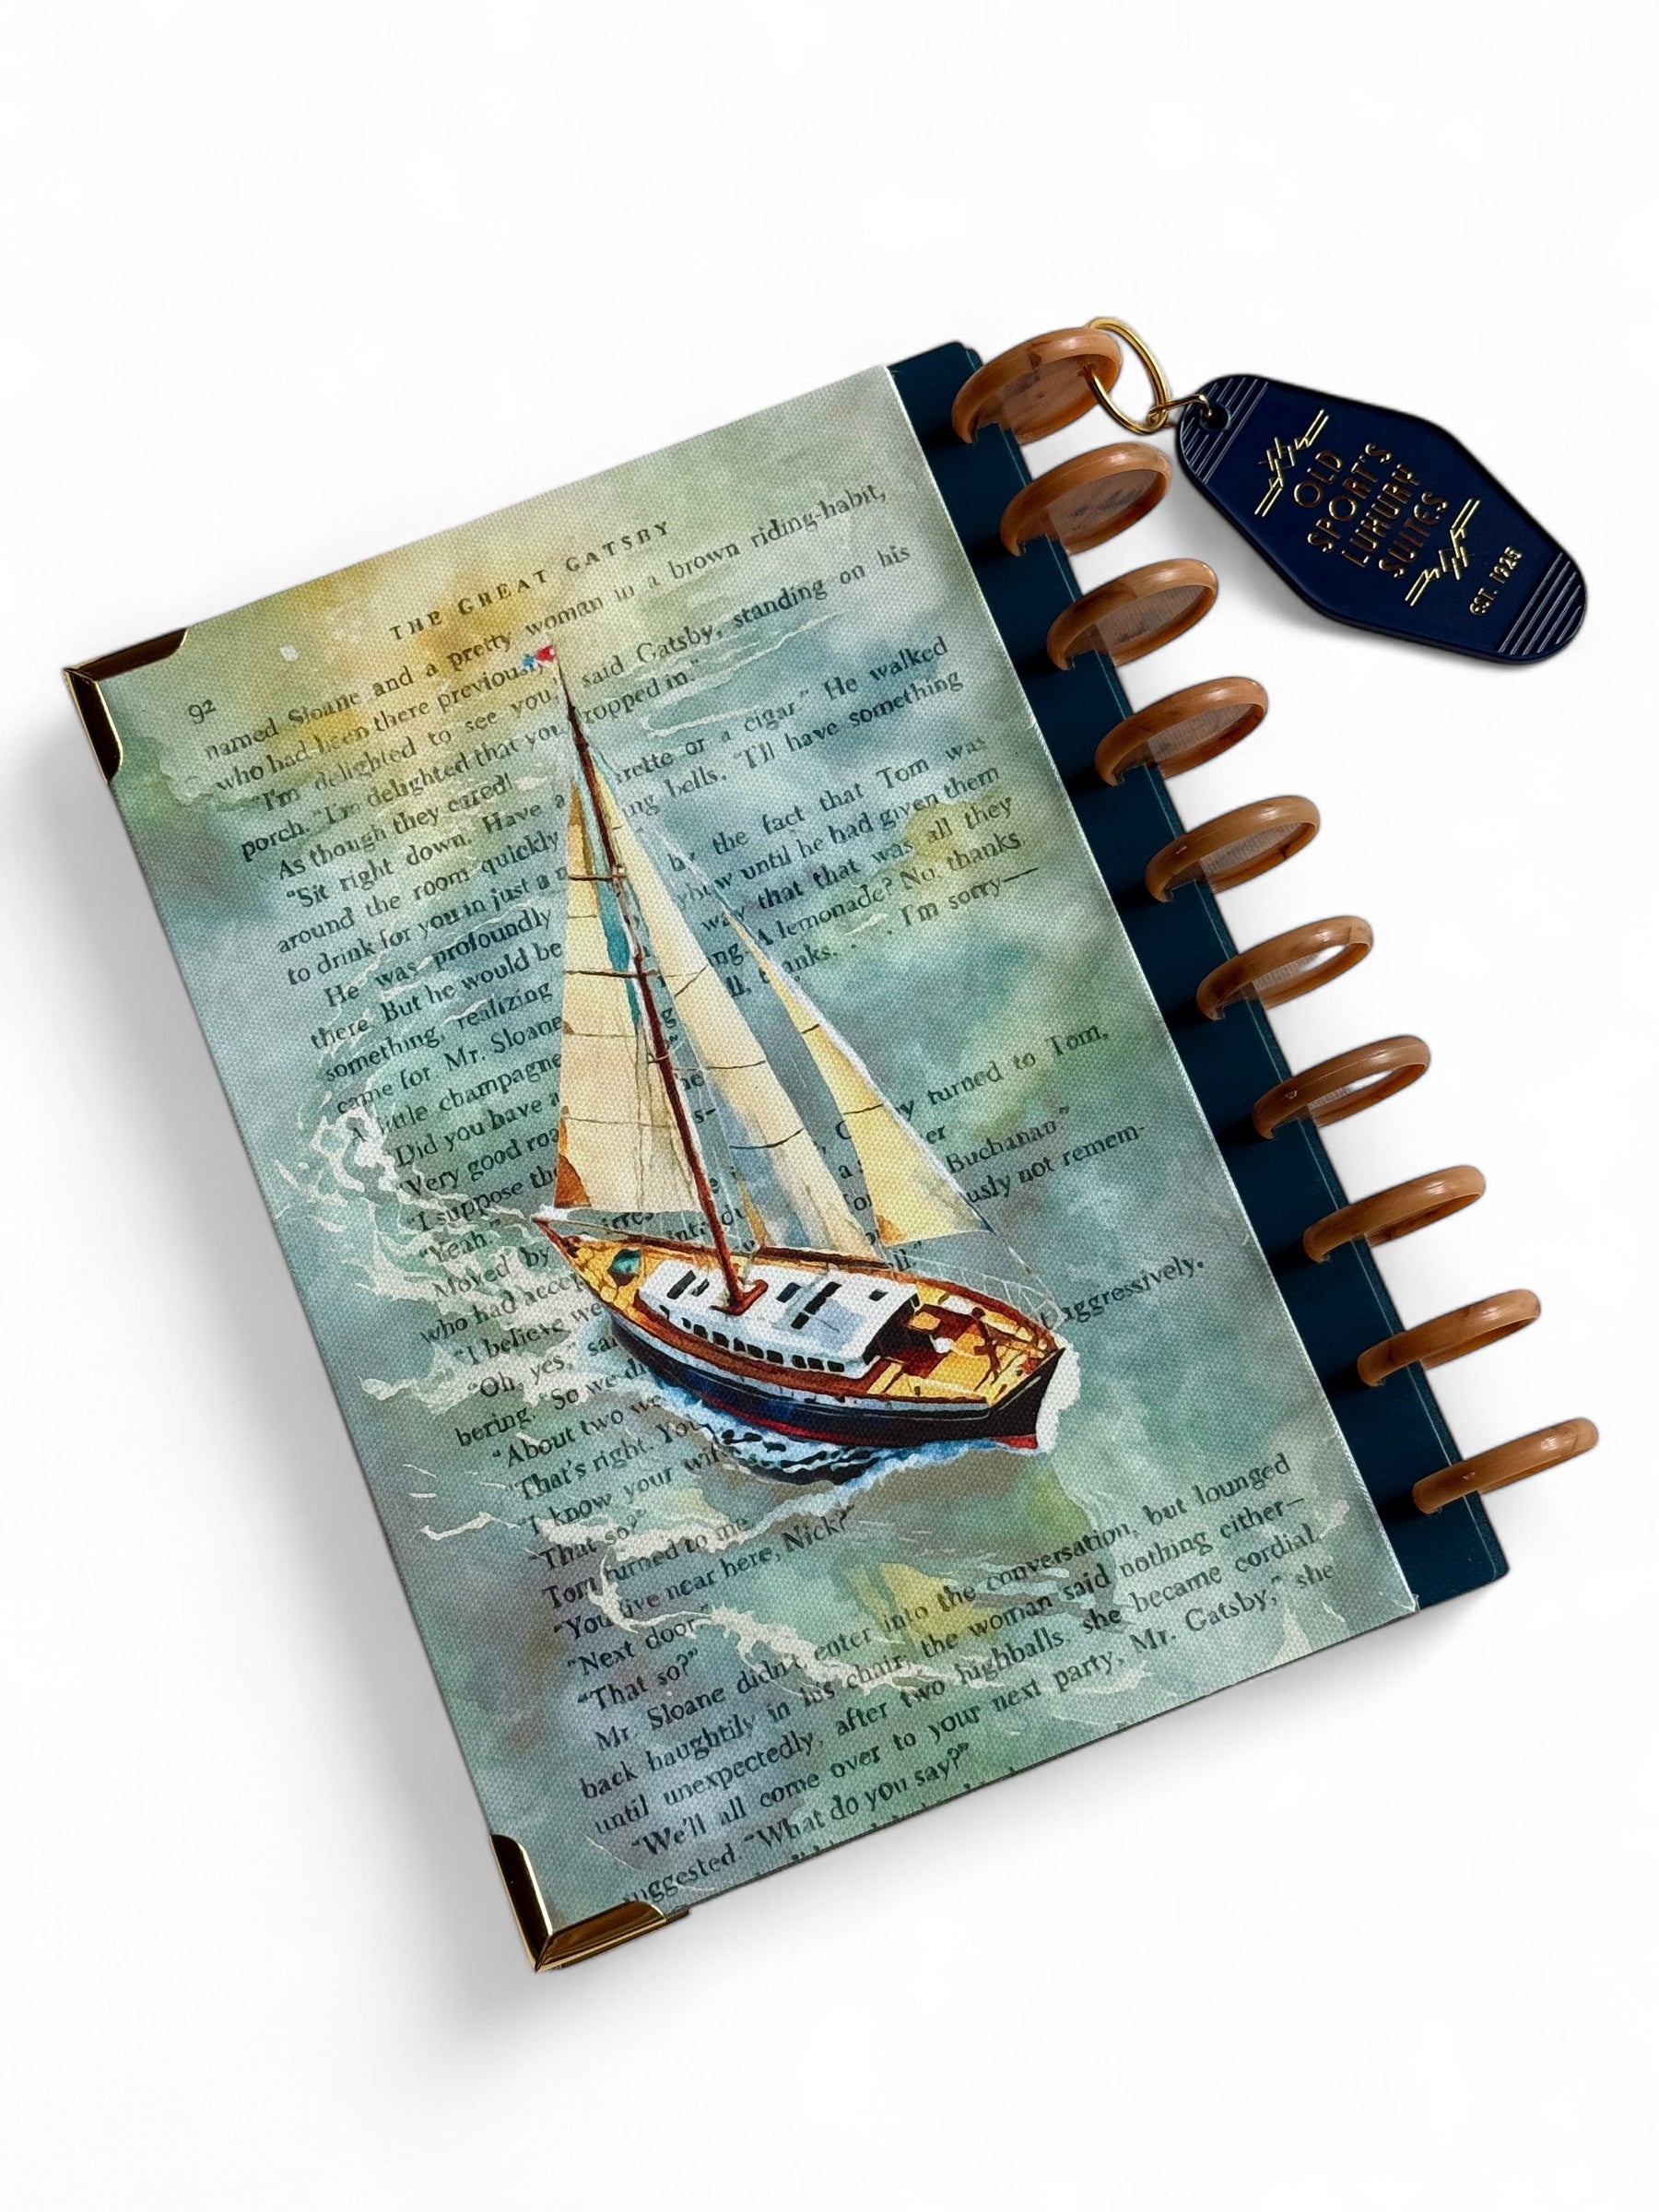 THE GREAT GATSBY
92
named Sloane and a pretty woman in a brown riding-habit,
who had been there previously
"I'm delighted to see you," said Gatsby, standing on his
porch. "I'm delighted that you dropped in."
As though they cared!
"Sit right down. Have a cigarette or a cigar." He walked
around the room quickly ing bells. "I'll have something
to drink for you in just a
He was profoundly by the fact that Tom was
there. But he would be until he had given them
something, realizing way that that was all they
came for. Mr. Sloane A lemonade? No, thanks.
A little champagne all, thanks. . . . I'm sorry—
Did you have a
"Very good roa
"I suppose the
"Yeah."
Moved by turned to Tom,
who had accep
"I believe we Buchanan"
"Oh, yes," sai usly not remem-
bering. "So we di
"About two we
"That's right. You
"I know your wif aggressively.
"That so?"
Tom turned to me
"You live near here, Nick?"
"Next door."
"That so?"
Mr. Sloane didn't enter into the conversation, but lounged
back haughtily in his chair; the woman said nothing either—
until unexpectedly, after two highballs, she became cordial.
"We'll all come over to your next party, Mr. Gatsby," she
suggested. "What do you say?"
OLD
SPORT'S
LUXURY
SUITES
EST. 1925